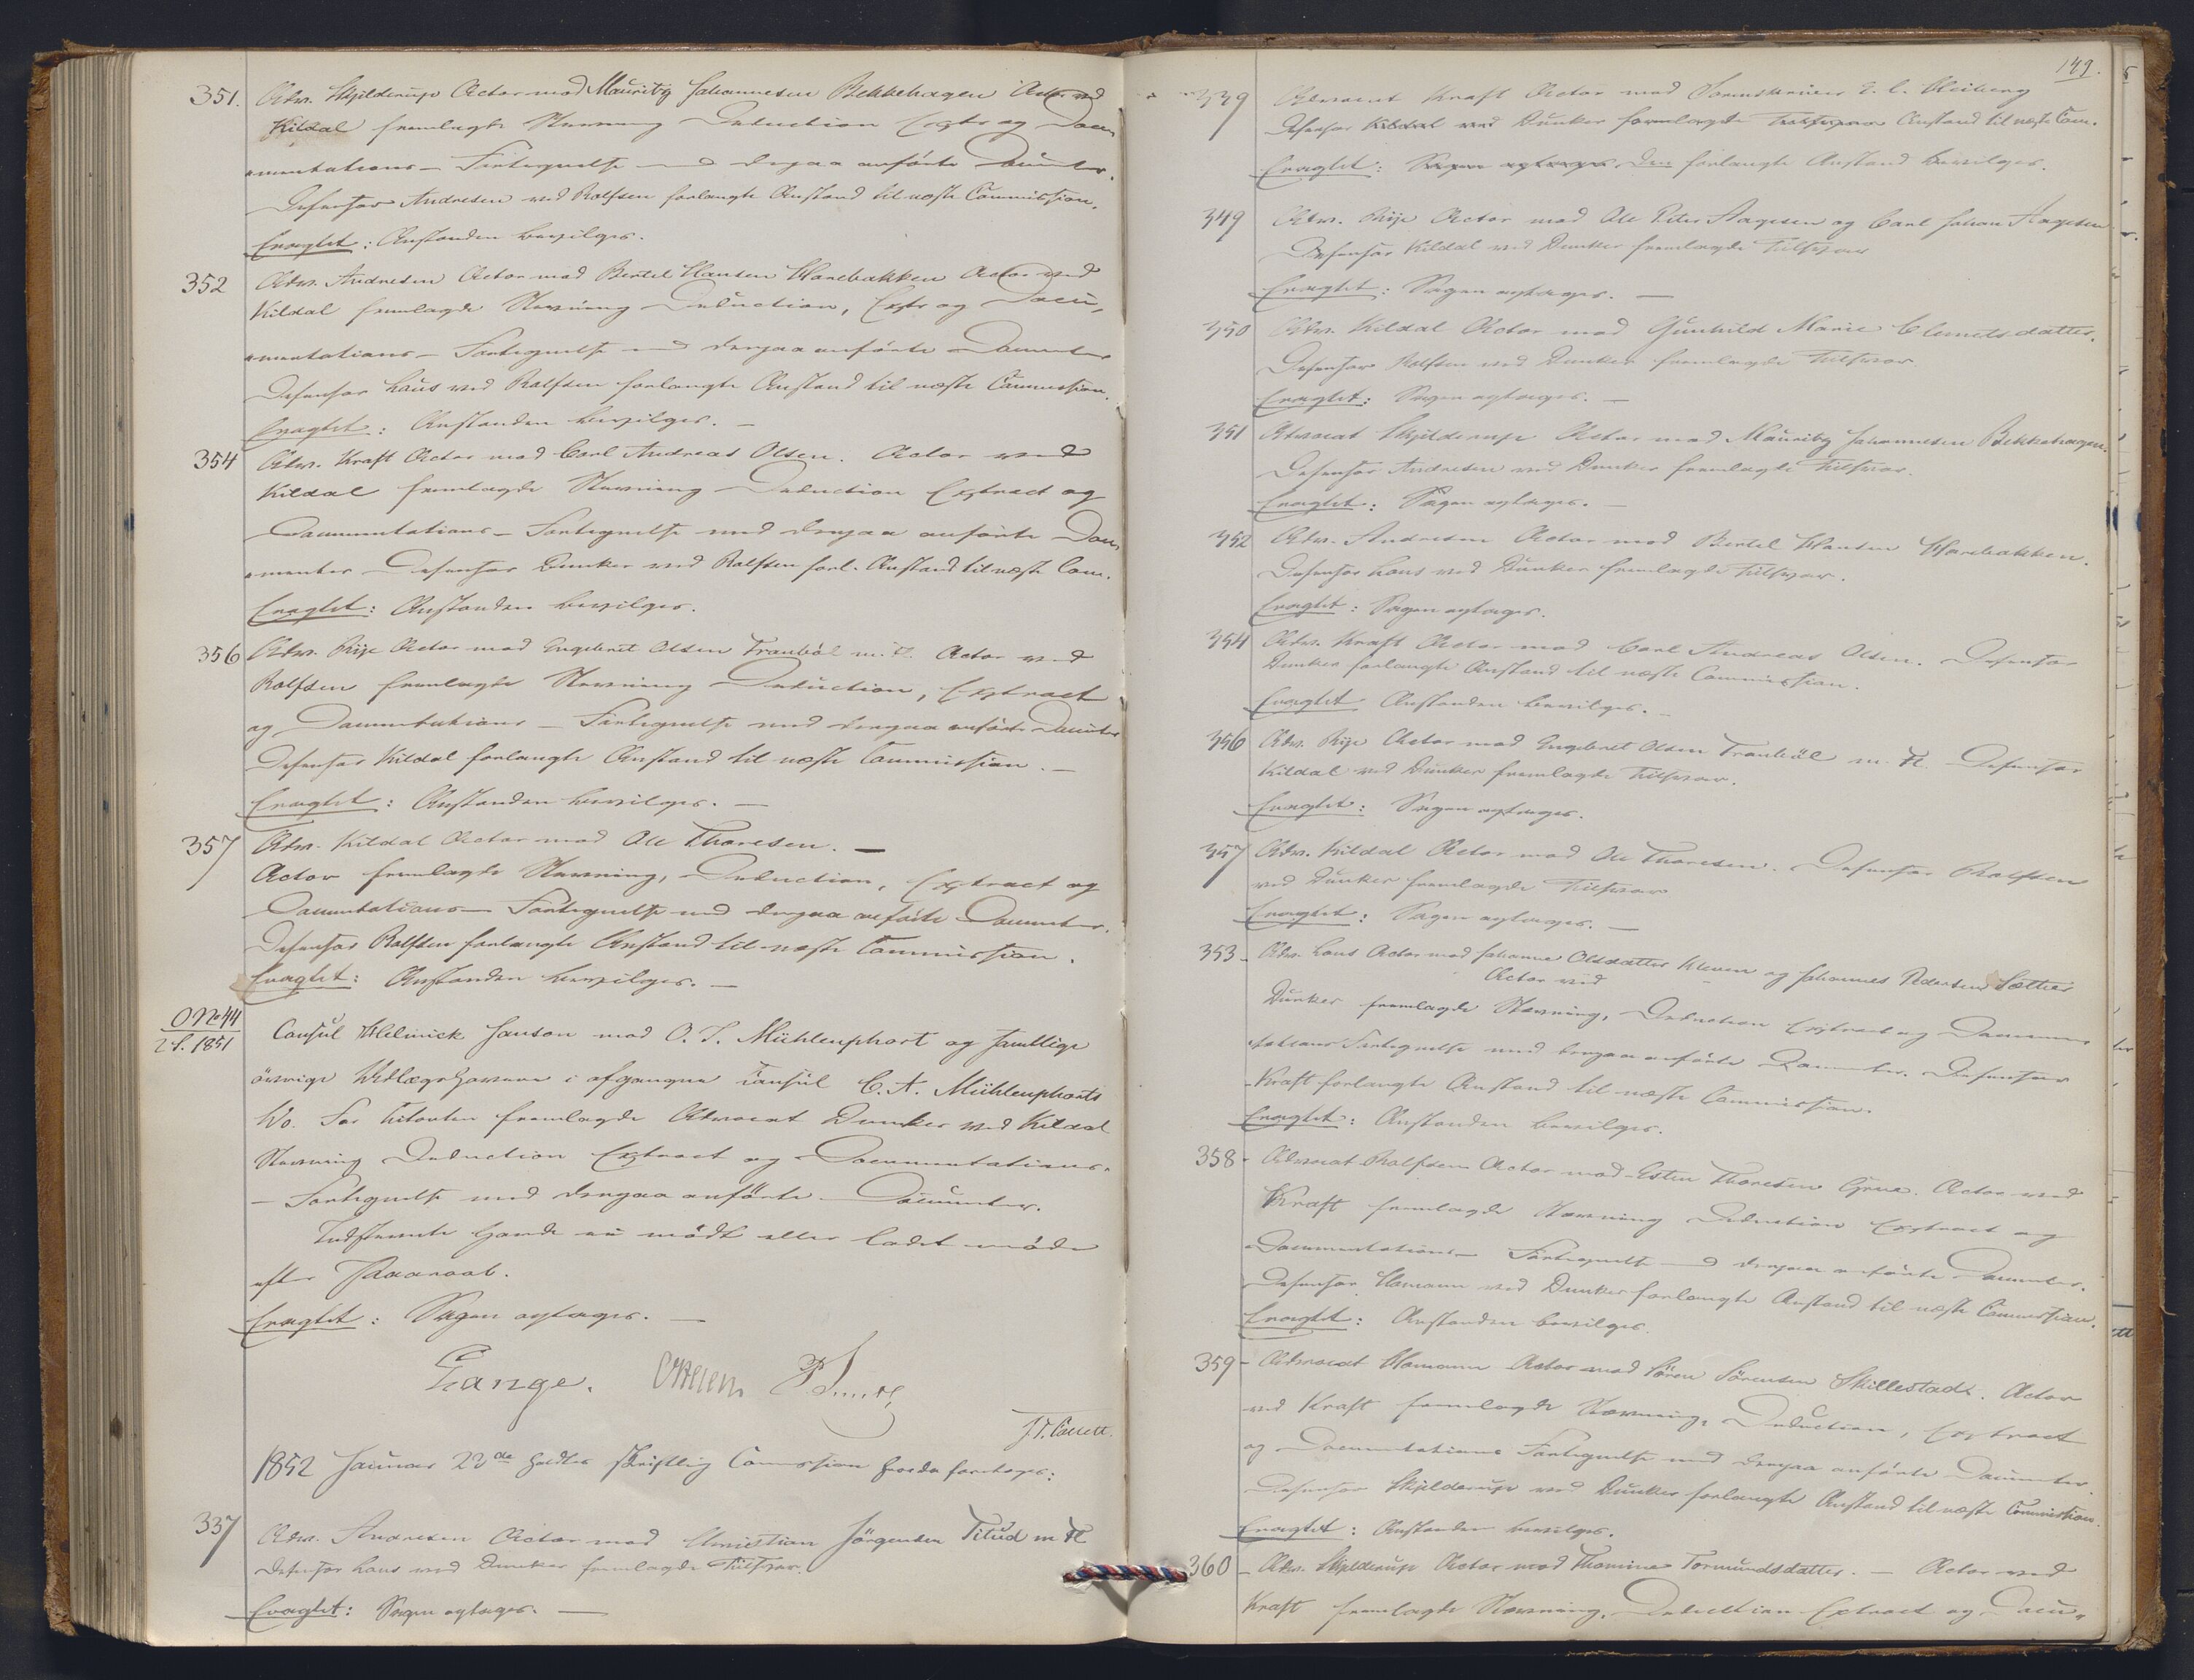 351. Adv. Skjilderup Actor mod Mauritz Johannesen Bekkehagen Actor ved
Kildal fremlagde Stevning Deduction Extr og Docu„
„mentations – Fortegnelse med derpaa anførte Documenter.
Defensor Andresen ved Rolfsen forlangte Anstand til næste Commission.
Eragtet: Anstanden bevilges.
352 Adv. Andresen Actor mod Bertel Hansen Harebakken Actor ved
Kildal fremlagde Stevning Deduction, Extr og Docu„
„mentations – Fortegnelse med derpaa anførte Documenter
Defensor Haus ved Rolfsen forlangte Anstand til næste Commission.
Eragtet: Anstanden bevilges. –
354 Adv. Kraft Actor mod Carl Andreas Olsen. Actor ved
Kildal fremlagde Stevning Deduction Extract og
Documentations – Fortegnelse med derpaa anførte Docu„
„menter Defensor Dunker ved Rolfsen forl. Anstand til næste Com.
Eragtet: Anstanden bevilges.
356 Adv. Rije Actor mod Engebret Olsen Tranbøl m. Fl. Actor ved
Rolfsen fremlagde Stevning Deduction, Extract
og Documentations – Fortegnelse med derpaa anførte Documenter
Defensor Kildal forlangte Anstand til næste Commission. –
Eragtet: Anstanden bevilges. –
357 Adv. Kildal Actor mod Ole Thoresen. –
Actor fremlagde Stevning, Deduction, Extract og
Documentations – Fortegnelse med derpaa anførte Documenter.
Defensor Rolfsen forlangte Anstand til næste Commission.
Eragtet: Anstanden bevilges. –
O No 44
2 S. 1851
Consul Helmick Janson mod O. J. Mühlenphort og samtlige
øvrige Vedlægshavere i afgangne Consul C. A. Mühlenphorts
Bo. For Citanten fremlagde Advocat Dunker ved Kildal
Stevning Deduction Extract og Documentations„
– Fortegnelse med derpaa anførte Documenter.
Indstevnte havde ei mödt eller ladet möde
efter Paaraab.
Eragtet: Sagen optages. –
Lange. P. Smith
J. C. Collett.
1852 Januar 23de holdtes skriftlig Commission hvorda foretoges:
337 Adv. Andresen Actor mod Christian Jörgensen Titud m Fl
Defensor Haus ved Dunker fremlagde Tilsvar.
Eragtet: Sagen optages. –
149.
339 Advocat Kraft Actor mod Sorenskriver E. C. Heiberg
Defensor Kildal ved Dunker forlangte Tilsvar Anstand til næste Com.
Eragtet: Sagen optages. Den forlangte Anstand bevilges.
349 Adv. Rije Actor mod Ole Peter Aagesen og Carl Johan Aagesen
Defensor Kildal ved Dunker fremlagde Tilsvar
Eragtet: Sagen optages. –
350 Adv. Kildal Actor mod Gunhild Marie Clemetsdatter.
Defensor Rolfsen ved Dunker fremlagde Tilsvar
Eragtet: Sagen optages. –
351 Advocat Skjilderup Actor mod Mauritz Johannesen Bekkehagen.
Defensor Andresen ved Dunker fremlagde Tilsvar.
Eragtet: Sagen optages. –
352 Adv. Andresen Actor mod Bertel Hansen Harebakken.
Defensor Haus ved Dunker fremlagde Tilsvar.
Eragtet: Sagen optages.
354 Adv. Kraft Actor mod Carl Andreas Olsen. Defensor
Dunker forlangte Anstand til næste Commission.
Eragtet Anstanden bevilges. –
356 Adv. Rije Actor mod Engebret Olsen Tranbøl m. Fl. Defensor
Kildal ved Dunker fremlagde Tilsvar.
Eragtet: Sagen optages.
357 Adv. Kildal Actor mod Ole Thoresen. Defensor Rolfsen
ved Dunker fremlagde Tilsvar
Eragtet: Sagen optages. –
353 – Adv. Haus Actor mod Johanne Olsdatter Kleven og Johannes Pedersens Sætter
Actor ved
Dunker fremlagde Stevning, Deduction Extract og Documen„
„tations Fortegnelse med derpaa anførte Documenter. Defensor
Kraft forlangte Anstand til næste Commission.
Eragtet: Anstanden bevilges.
358 – Advocat Rolfsen Actor mod Esten Thoresen Grue. Actor ved
Kraft fremlagde Stevning Deduction Extract og
Documentations – Fortegnelse med derpaa anførte Documenter.
Defensor Homann ved Dunker forlangte Anstand til næste Commission.
Eragtet: Anstanden bevilges.
359 – Advocat Homann Actor mod Sören Sörensen Skillestadt. Actor
ved Kraft fremlagde Stevning, Deduction, Extract
og Documentations Fortegnelse med derpaa anførte Documenter.
Defensor Skjilderup ved Dunker forlangte Anstand til næste Commission.
Eragtet: Anstanden bevilges.
360 – Adv. Skjilderup Actor mod Thomine Tormundsdatter. – Actor ved
Kraft fremlagde Stevning, Deduction Extract og Docu„